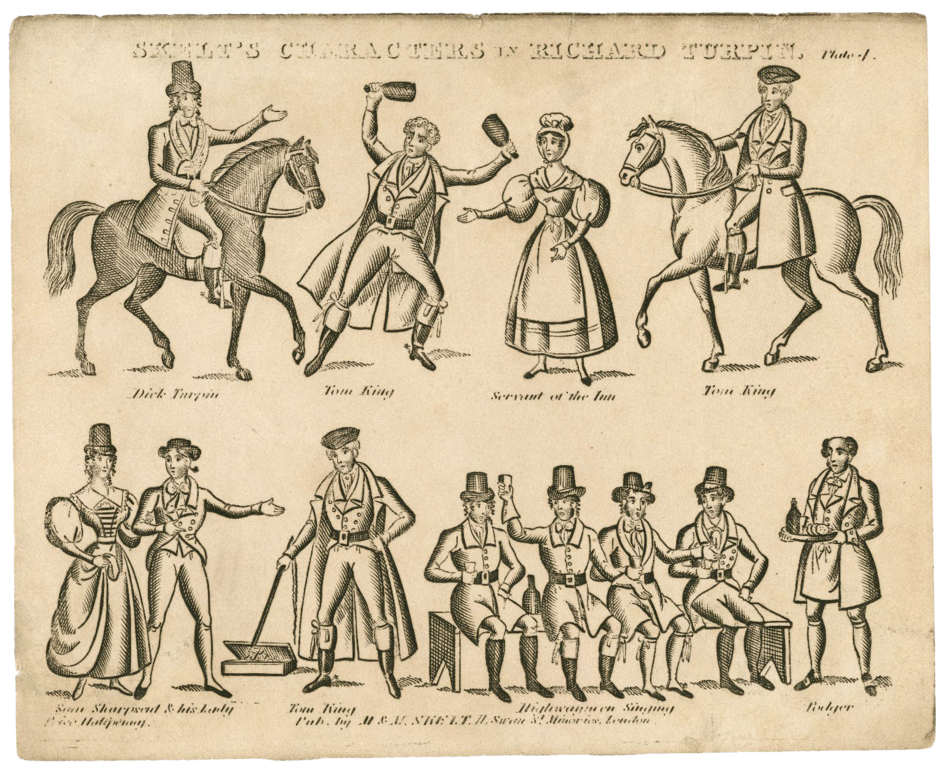 SKELT'S CHARACTERS IN RICHARD TURPIN. Plate 4.
Dick Turpin
Tom King
Servant of the Inn
Tom King
Sam Sharpscent & his Lady
Tom King
Highwaymen Singing
Podger
Price Halfpenny.
Pub. by M & M. SKELT, 11, Swan St. Minories, London.